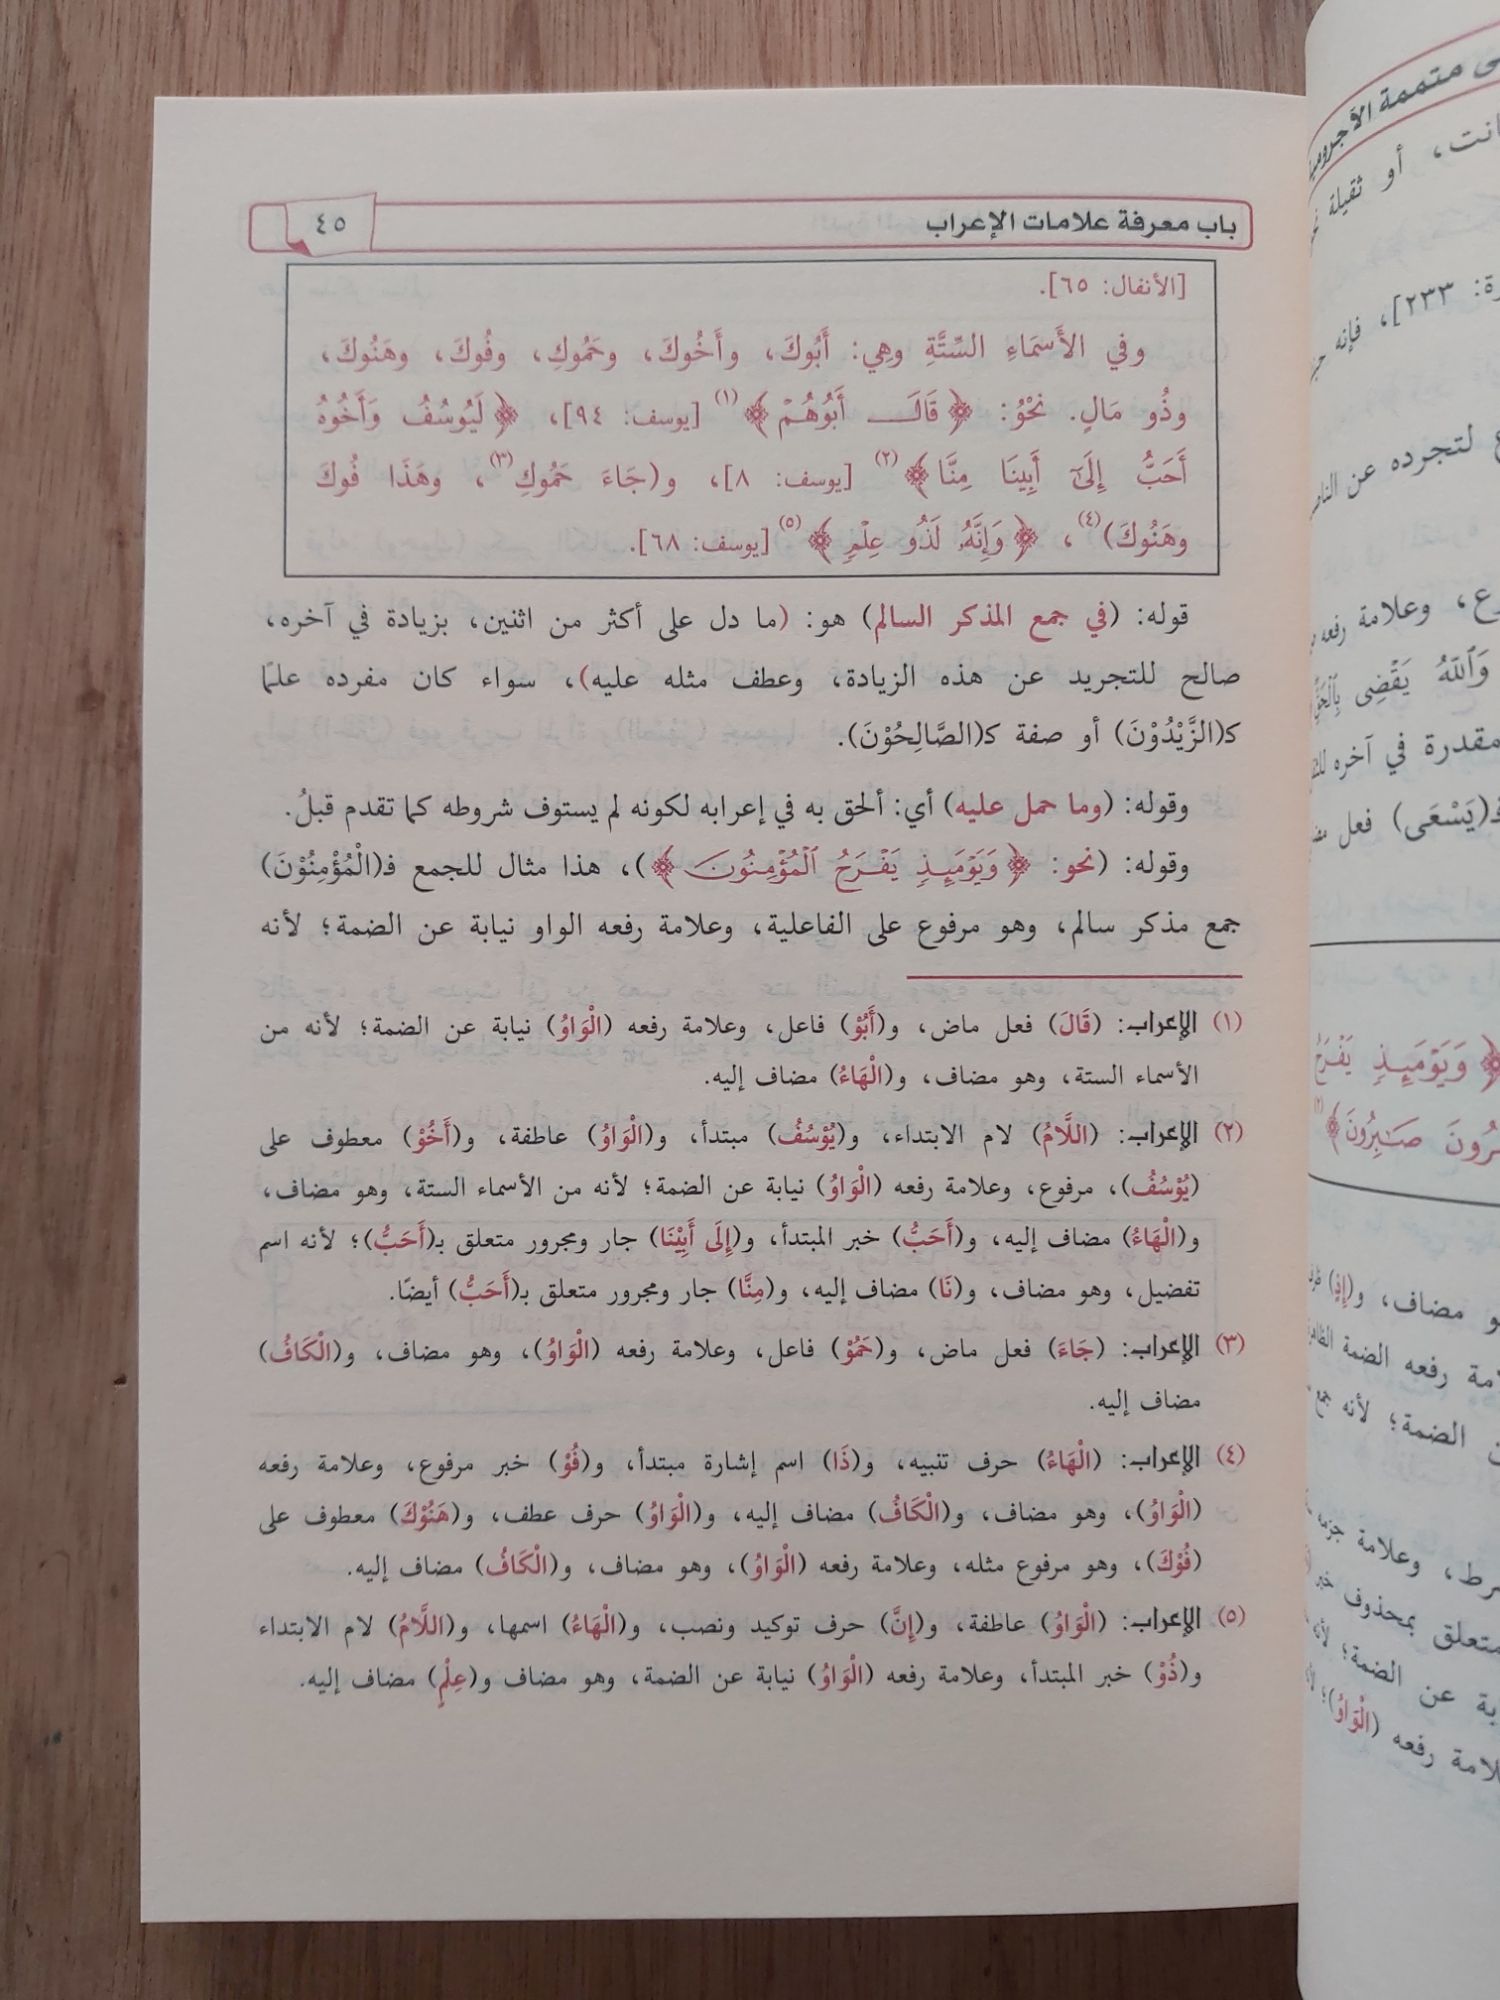 باب معرفة علامات الإعراب
٤٥
[الأنفال: ٦٥].
وفي الأَسمَاءِ السِّتَّةِ وهِي: أَبُوكَ، وأَخُوكَ، وحَمُوكِ، وفُوكَ، وهَنُوكَ،
وذُو مَالٍ. نحْوُ: ﴿قَالَ أَبُوهُمْ﴾(١) [يوسف: ٩٤]، ﴿لَيُوسُفُ وَأَخُوهُ
أَحَبُّ إِلَىٰٓ أَبِينَا مِنَّا﴾(٢) [يوسف: ٨]، و(جَاءَ حَمُوكِ(٣)، وهَذَا فُوكَ
وهَنُوكَ)(٤)، ﴿وَإِنَّهُۥ لَذُو عِلْمٍ﴾(٥) [يوسف: ٦٨].
قوله: (في جمع المذكر السالم) هو: (ما دل على أكثر من اثنين، بزيادة في آخره،
صالح للتجريد عن هذه الزيادة، وعطف مثله عليه)، سواء كان مفرده علمًا
كـ(الزَّيْدُوْنَ) أو صفة كـ(الصَّالِحُوْنَ).
وقوله: (وما حمل عليه) أي: ألحق به في إعرابه لكونه لم يستوف شروطه كما تقدم قبلُ.
وقوله: (نحو: ﴿وَيَوْمَئِذٍ يَفْرَحُ ٱلْمُؤْمِنُونَ﴾)، هذا مثال للجمع فـ(الْمُؤْمِنُوْنَ)
جمع مذكر سالم، وهو مرفوع على الفاعلية، وعلامة رفعه الواو نيابة عن الضمة؛ لأنه
(١) الإعراب: (قَالَ) فعل ماض، و(أَبُوْ) فاعل، وعلامة رفعه (الْوَاوُ) نيابة عن الضمة؛ لأنه من
الأسماء الستة، وهو مضاف، و(الْهَاءُ) مضاف إليه.
(٢) الإعراب: (اللَّامُ) لام الابتداء، و(يُوْسُفُ) مبتدأ، و(الْوَاوُ) عاطفة، و(أَخُوْ) معطوف على
(يُوْسُفُ)، مرفوع، وعلامة رفعه (الْوَاوُ) نيابة عن الضمة؛ لأنه من الأسماء الستة، وهو مضاف،
و(الْهَاءُ) مضاف إليه، و(أَحَبُّ) خبر المبتدأ، و(إِلَى أَبِيْنَا) جار ومجرور متعلق بـ(أَحَبُّ)؛ لأنه اسم
تفضيل، وهو مضاف، و(نَا) مضاف إليه، و(مِنَّا) جار ومجرور متعلق بـ(أَحَبُّ) أيضًا.
(٣) الإعراب: (جَاءَ) فعل ماض، و(حَمُوْ) فاعل، وعلامة رفعه (الْوَاوُ)، وهو مضاف، و(الْكَافُ)
مضاف إليه.
(٤) الإعراب: (الْهَاءُ) حرف تنبيه، و(ذَا) اسم إشارة مبتدأ، و(فُوْ) خبر مرفوع، وعلامة رفعه
(الْوَاوُ)، وهو مضاف، و(الْكَافُ) مضاف إليه، و(الْوَاوُ) حرف عطف، و(هَنُوْكَ) معطوف على
(فُوْكَ)، وهو مرفوع مثله، وعلامة رفعه (الْوَاوُ)، وهو مضاف، و(الْكَافُ) مضاف إليه.
(٥) الإعراب: (الْوَاوُ) عاطفة، و(إِنَّ) حرف توكيد ونصب، و(الْهَاءُ) اسمها، و(اللَّامُ) لام الابتداء
و(ذُوْ) خبر المبتدأ، وعلامة رفعه (الْوَاوُ) نيابة عن الضمة، وهو مضاف و(عِلْمٍ) مضاف إليه.
متممة الآجرومية
أو ثقيلة
٢٣٣]، فإنه
لتجرده عن
وعلامة رفعه
وَٱللَّهُ يَقْضِى بِٱلْحَقِّ
مقدرة في آخره
فـ(يَسْعَى) فعل
﴿وَيَوْمَئِذٍ يَفْرَحُ
صَـٰبِرُونَ﴾
مضاف، و(إِذٍ)
رفعه الضمة
الضمة؛ لأنه جمع
وعلامة جزمه
متعلق بمحذوف خبر
عن الضمة؛ لأنه
رفعه (الْوَاوُ)؛